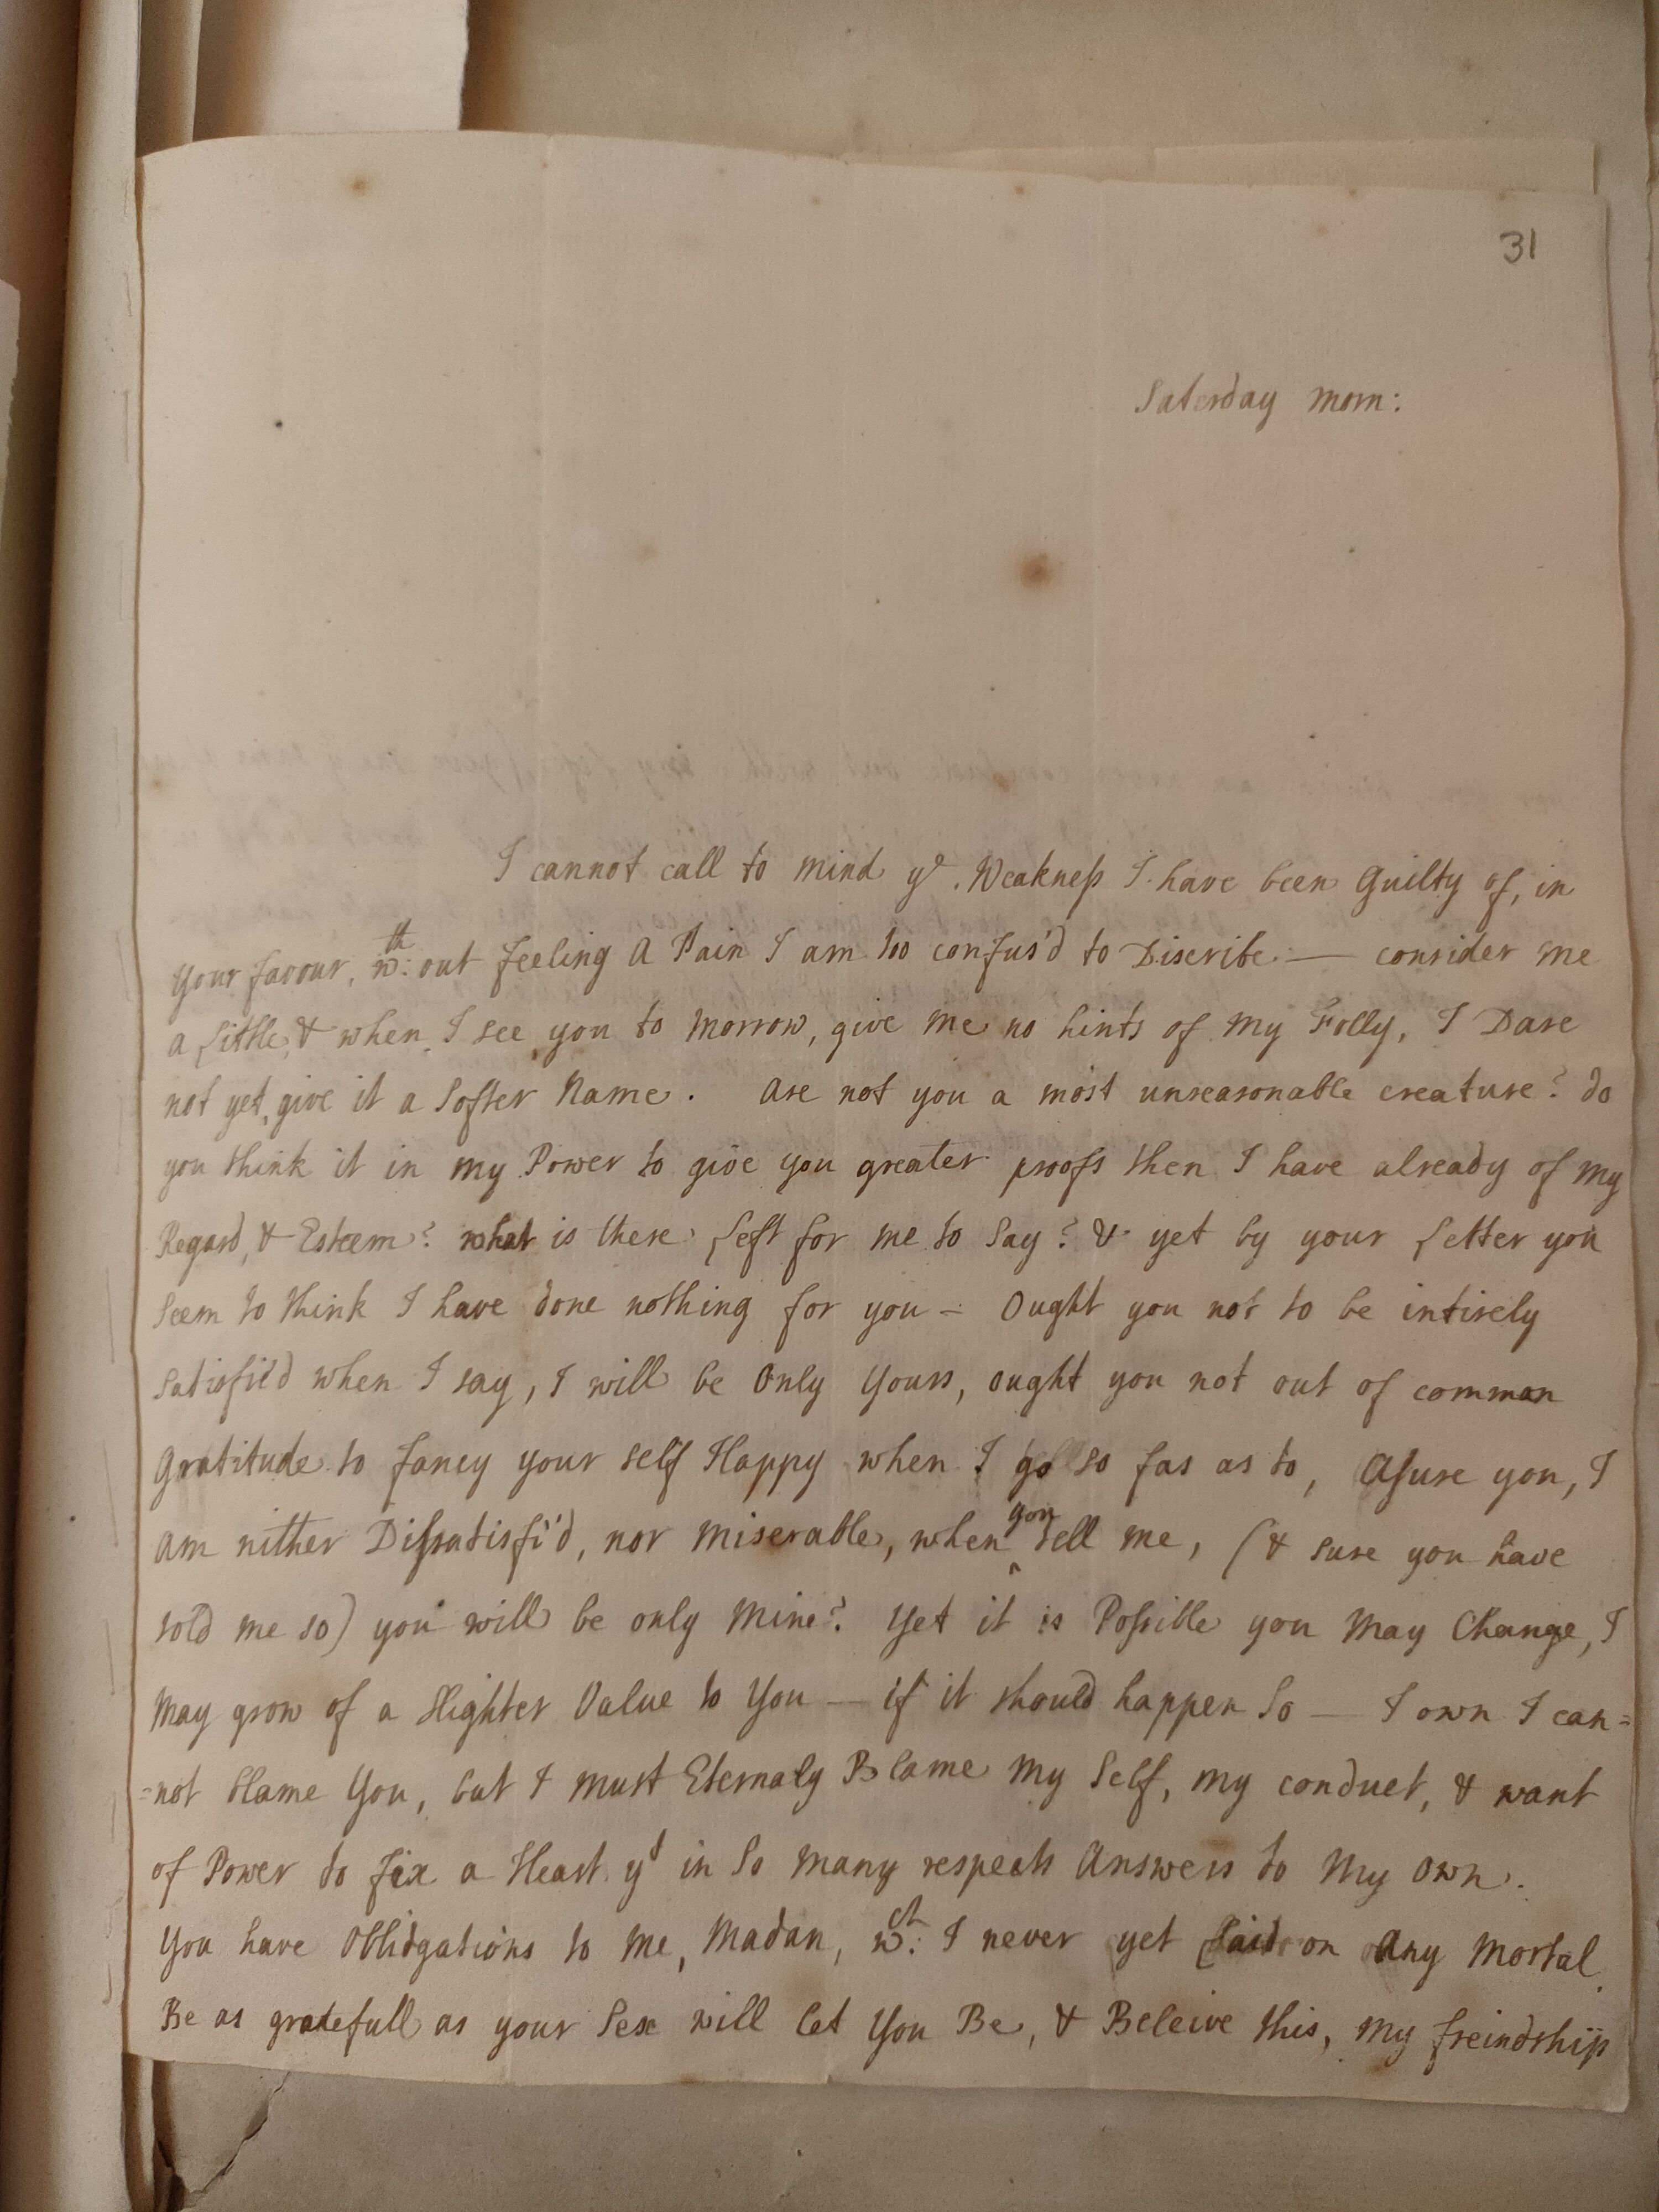 31
Saterday morn:
I cannot call to mind ye. Weakness I have been Guilty of, in
your favour, wth: out feeling A Pain I am too confus'd to Discribe — consider me
a little, & when I see you to morrow, give me no hints of my Folly, I Dare
not yet give it a Softer Name. Are not you a most unreasonable creature? do
you think it in my Power to give you greater proofs then I have already of my
Regard, & Esteem? what is there left for me to Say? & yet by your letter you
Seem to think I have done nothing for you – Ought you not to be intirely
satisfi'd when I say, I will be Only Yours, ought you not out of common
Gratitude to fancy your self Happy when I go so far as to, Asure you, I
am nither Dissatisfi'd, nor miserable, when you tell me, (& sure you have
told me so) you will be only Mine? Yet it is Possible you May Change, I
May grow of a Slighter Value to You — if it should happen So — I own I can=
=not blame You, but I must Eternaly Blame My Self, my conduct, & want
of Power to fix a Heart yt in So many respects Answers to My Own.
You have Oblidgations to Me, Madan, wch: I never yet laid on Any Mortal.
Be as gratefull as your Sex will let You Be, & Beleive this, My freindship